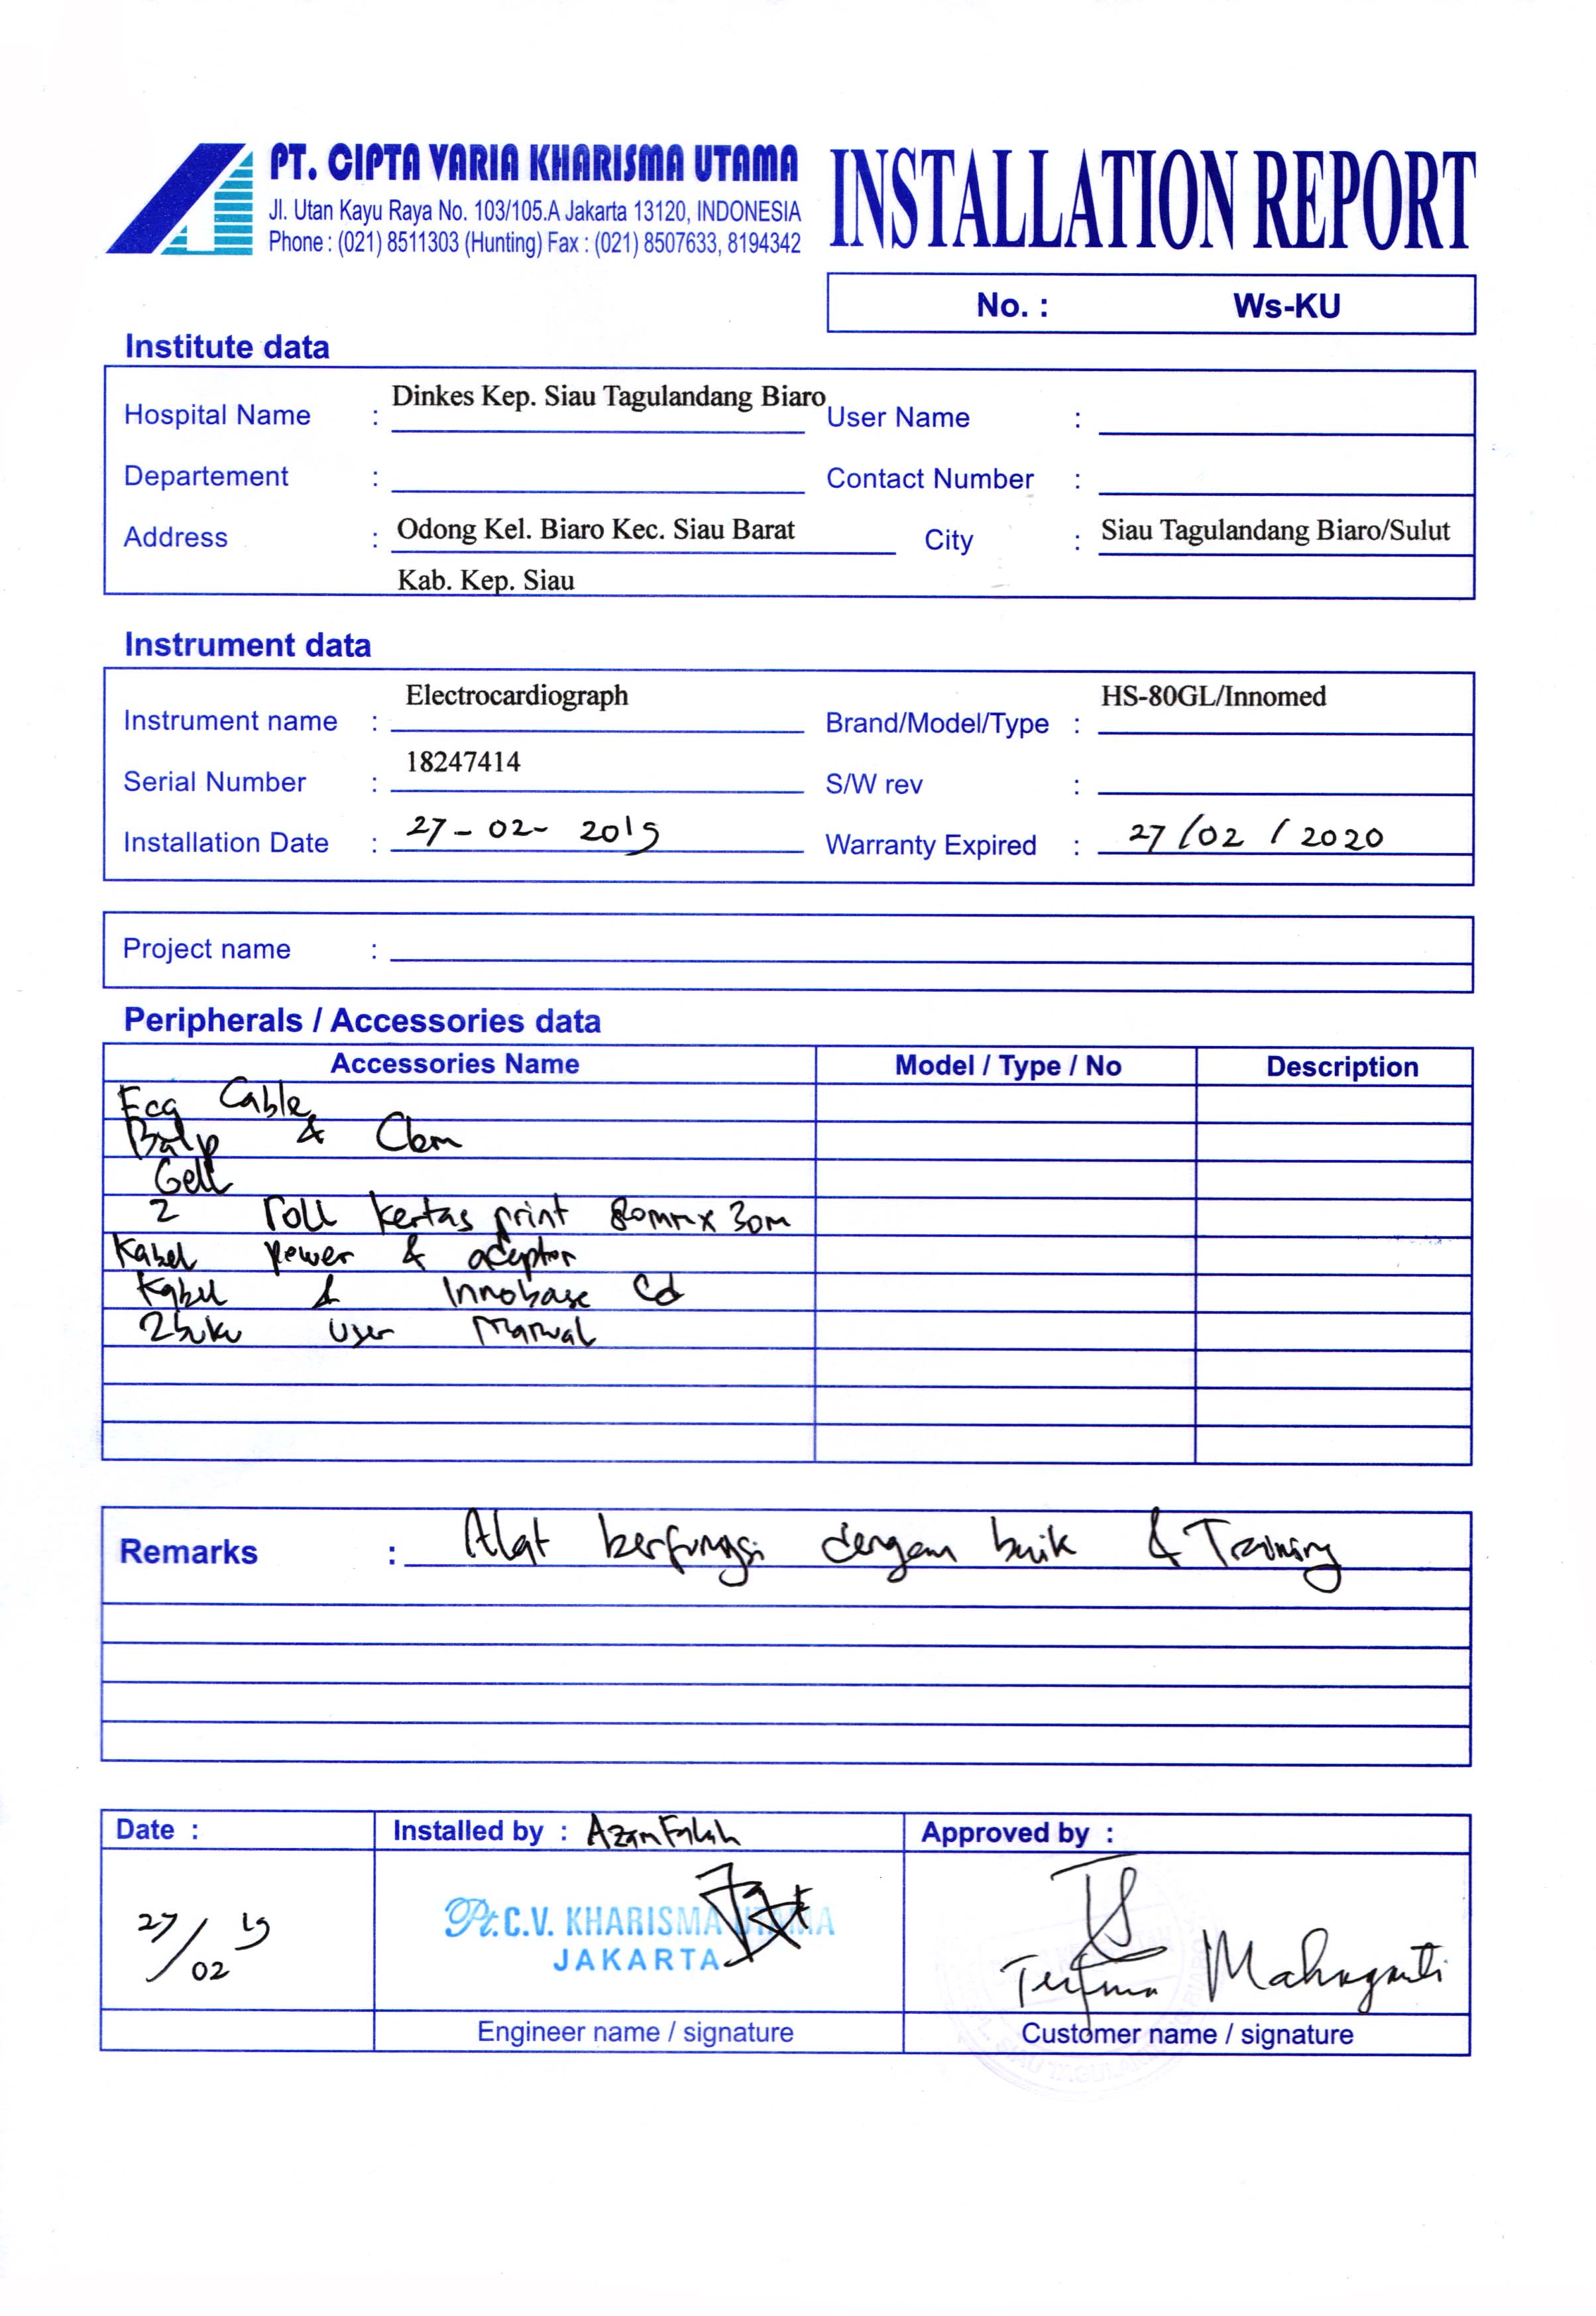 PT. CIPTA VARIA KHARISMA UTAMA
Jl. Utan Kayu Raya No. 103/105.A Jakarta 13120, INDONESIA
Phone : (021) 8511303 (Hunting) Fax : (021) 8507633, 8194342
INSTALLATION REPORT
No. : Ws-KU
Institute data
Hospital Name : Dinkes Kep. Siau Tagulandang Biaro User Name :
Departement : Contact Number :
Address : Odong Kel. Biaro Kec. Siau Barat City : Siau Tagulandang Biaro/Sulut
Kab. Kep. Siau
Instrument data
Instrument name : Electrocardiograph Brand/Model/Type : HS-80GL/Innomed
Serial Number : 18247414 S/W rev :
Installation Date : 27-02-2019 Warranty Expired : 27/02/2020
Project name :
Peripherals / Accessories data
Accessories Name Model / Type / No Description
Ecg Cable
Balp & Clem
Gell
2 roll kertas print 80mm x 30m
Kabel power & adaptor
Kabel & Innobase Cd
2 buku user Manual
Remarks : Alat berfungsi dengan baik & Training
Date : Installed by : Azam Falah Approved by :
27/02 19
Pt.C.V. KHARISMA UTAMA
JAKARTA
Engineer name / signature Customer name / signature